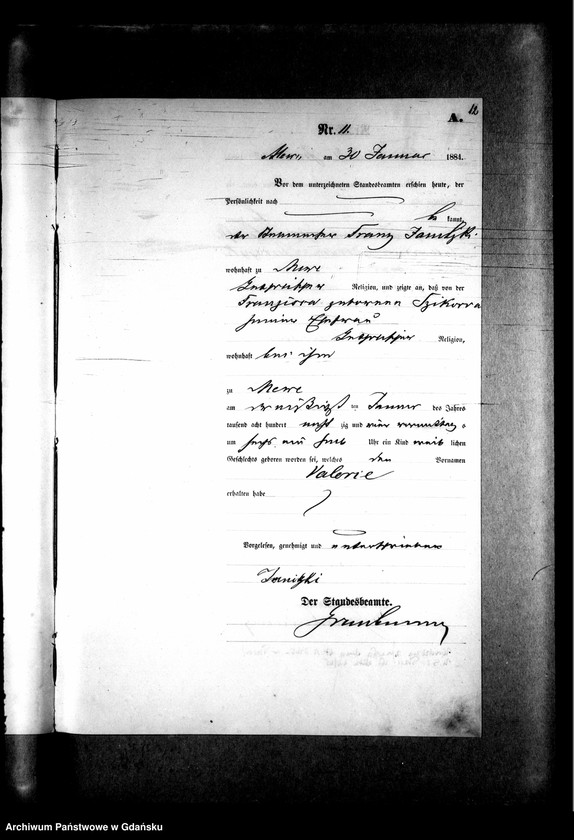 12
A.
Nr. 11.
Mewe, am 30 Januar 1884.
Vor dem unterzeichneten Standesbeamten erschien heute, der
Persönlichkeit nach
be kannt,
der Franz Janitzki
wohnhaft zu Mewe
katholischer Religion, und zeigte an, daß von der
Franziska geborenen Sikorra
seiner Ehefrau
katholischer Religion,
wohnhaft bei ihm
zu Mewe
am Januar des Jahres
tausend acht hundert acht zig und vier
um sechs ein halb Uhr ein Kind weib lichen
Geschlechts geboren worden sei, welches den Vornamen
Valerie
erhalten habe
Vorgelesen, genehmigt und unterschrieben
Janitzki
Der Standesbeamte.
Archiwum Państwowe w Gdańsku